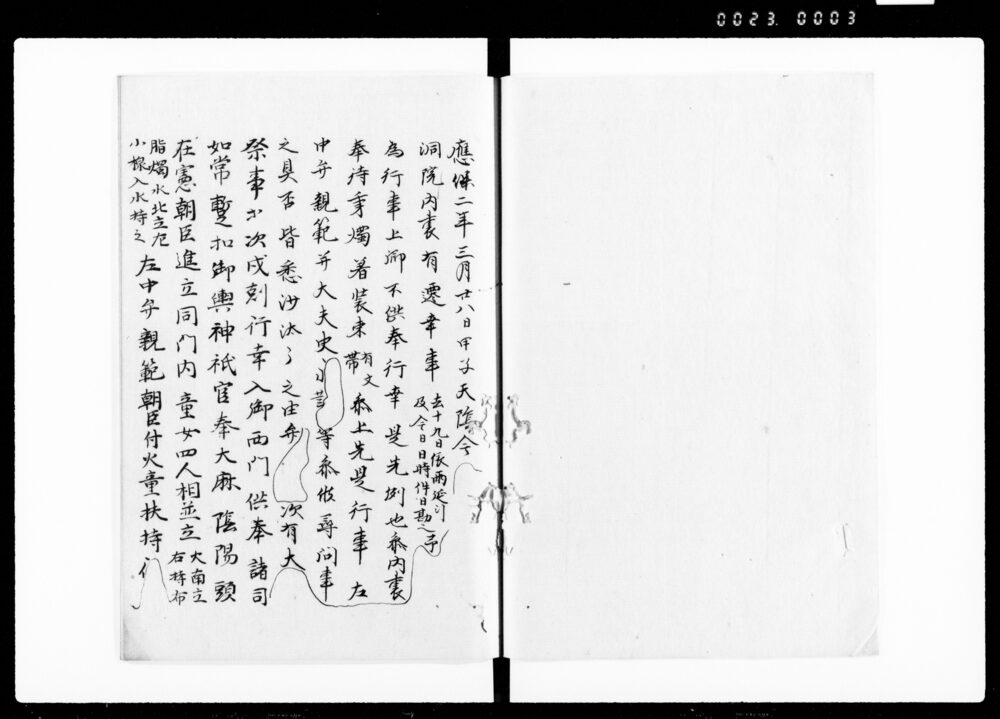 0023. 0003
應保二年三月廿八日甲子天陰今
洞院内裏有遷幸事去十九日依雨延引及今日日時件日勘之予
為行事上卿不供奉行幸是先例也参内裏
奉待秉燭着装束有文帯参上先是行事左
中弁親範并大夫史等参候尋問事
之具否皆悉沙汰了之由弁次有大
祭事次戌剋行幸入御西門供奉諸司
如常暫扣御輿神祇官奉大麻陰陽頭
在憲朝臣進立同門内童女四人相並立火南立右持布
脂燭水北立左小桶入水持之左中弁親範朝臣付火童扶持